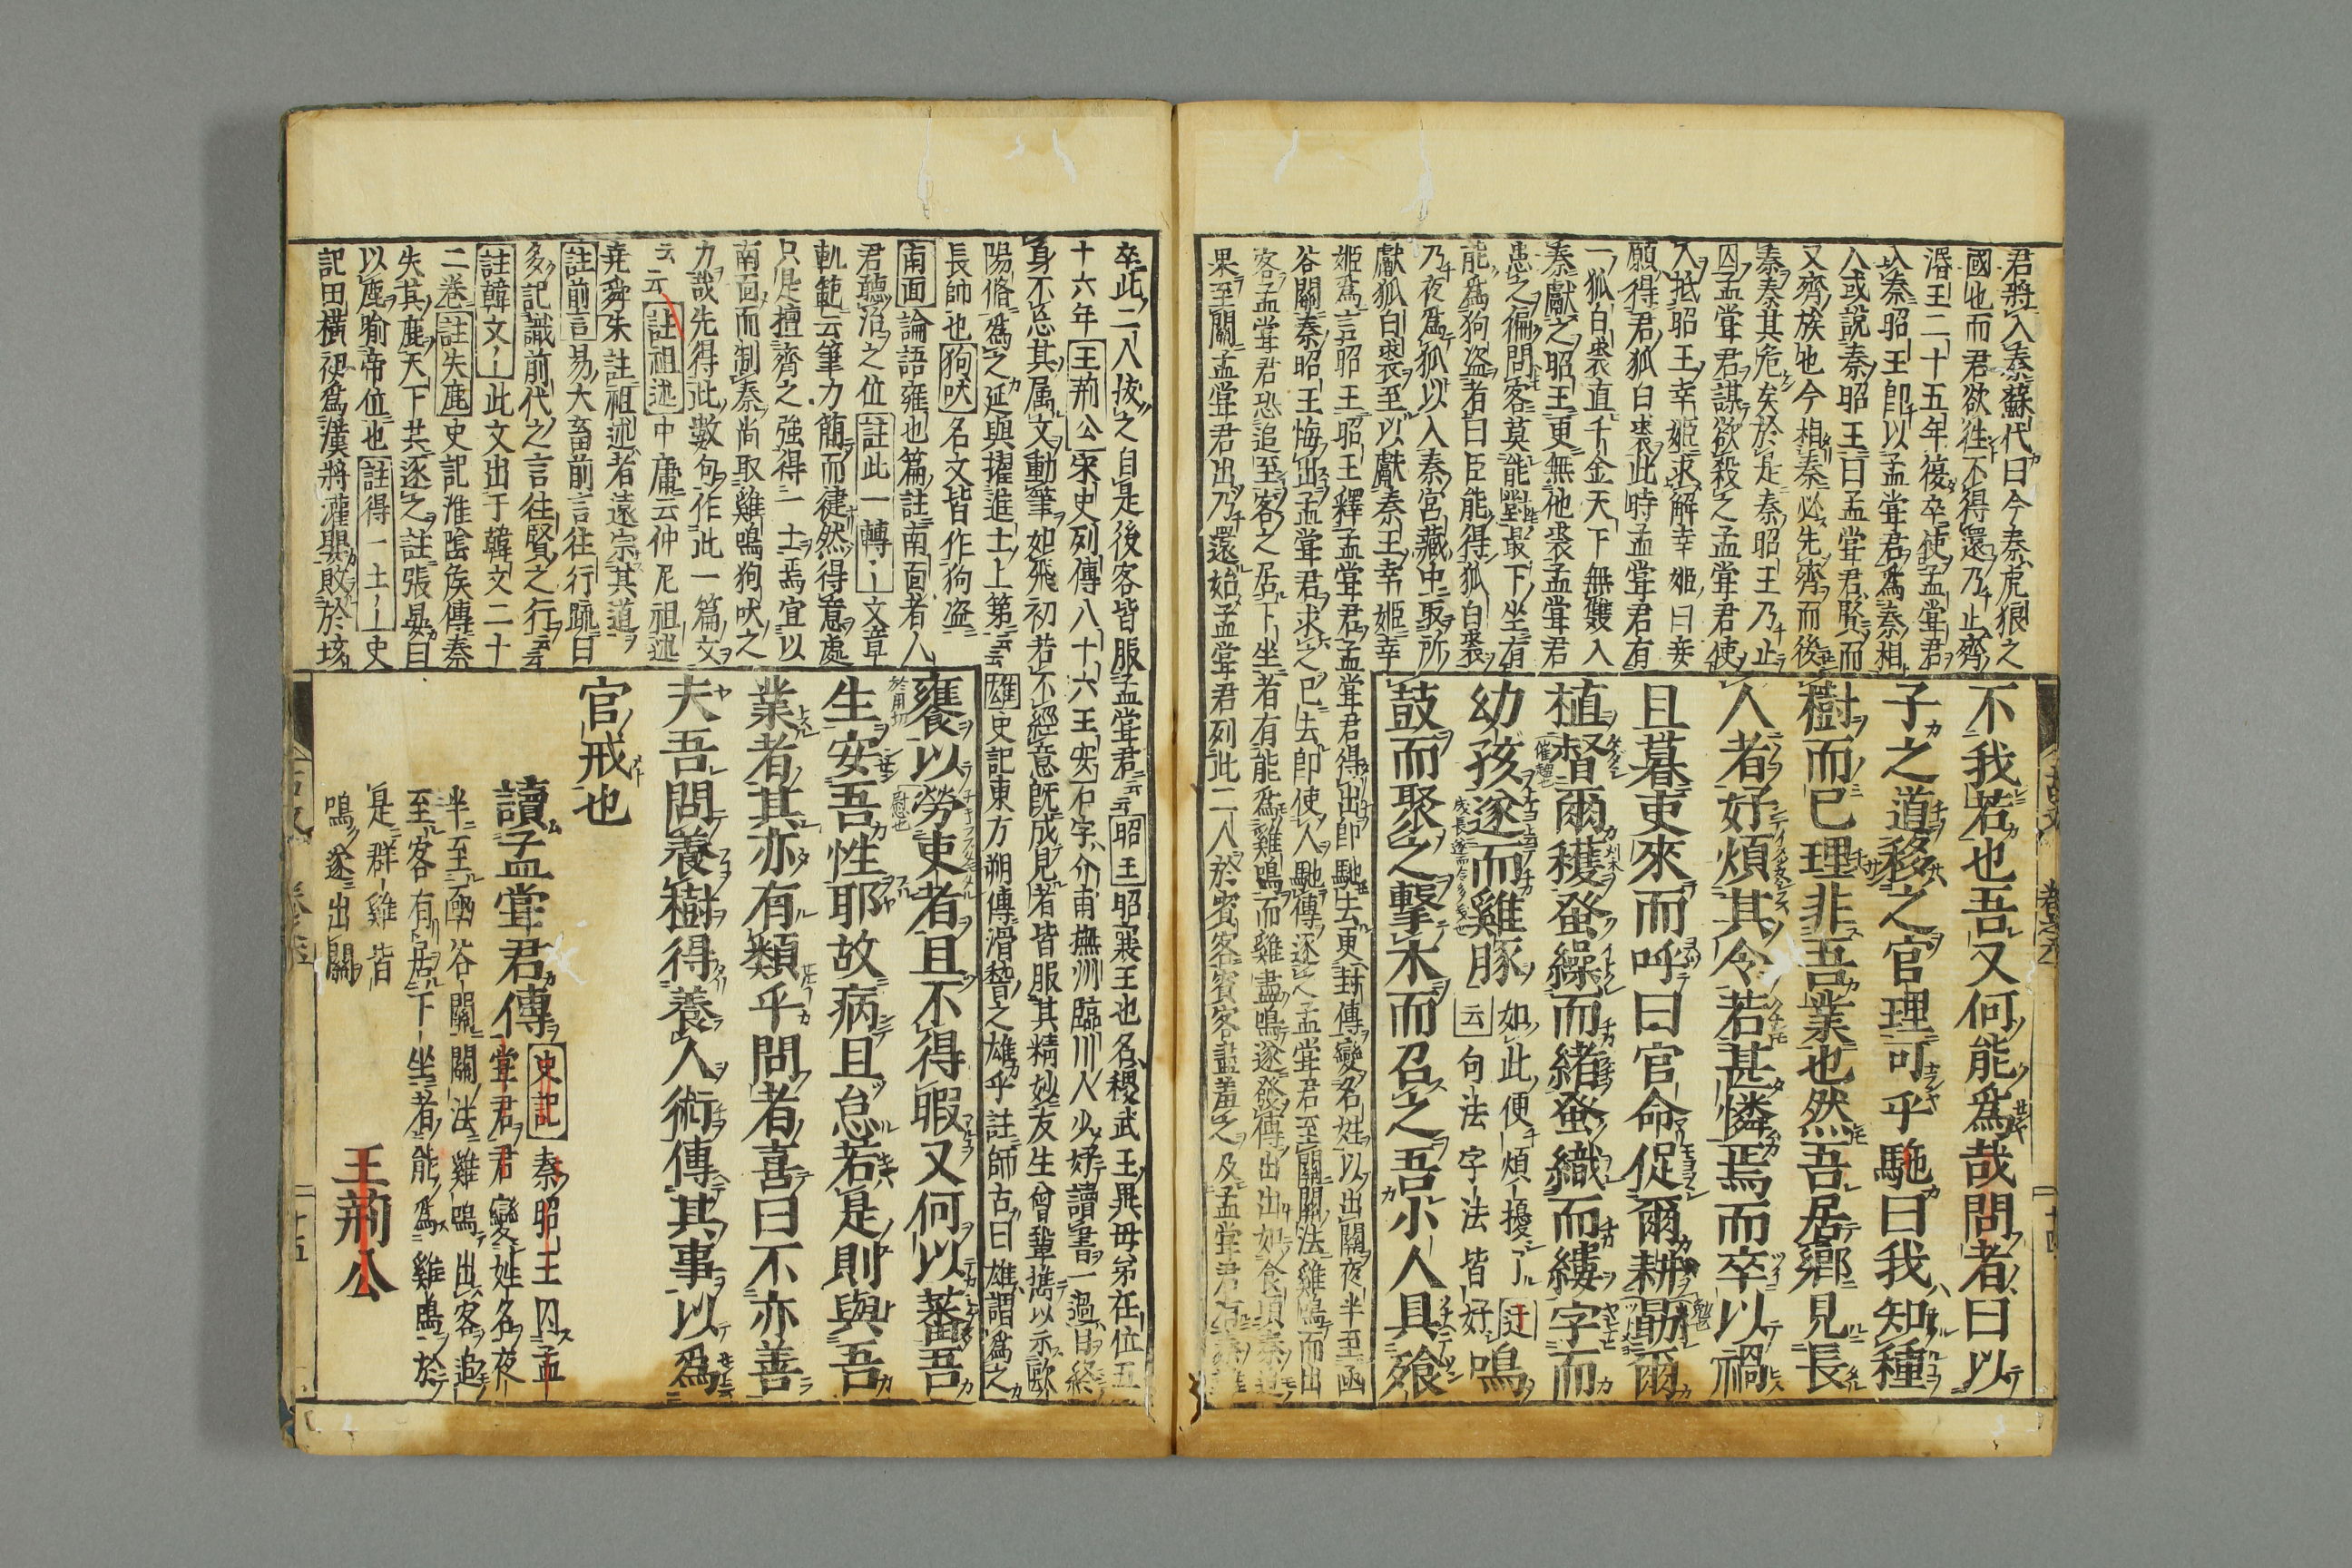 君將入秦蘇代曰今秦虎狼之
國也而君欲往不得還乃止齊
湣王二十五年復卒使孟甞君
入秦昭王即以孟甞君爲秦相
人或說秦昭王曰孟甞君賢而
又齊族也今相秦必先齊而後
秦秦其危矣於是秦昭王乃止
囚孟甞君謀欲殺之孟甞君使
人抵昭王幸姬求解幸姬曰妾
願得君狐白裘此時孟甞君有
一狐白裘直千金天下無雙入
秦獻之昭王更無他裘孟甞君
患之徧問客莫能對最下坐有
能爲狗盗者曰臣能得狐白裘
乃夜爲狐以入秦宮藏中取所
獻狐白裘至以獻秦王幸姬幸
姬爲言昭王昭王釋孟甞君孟甞君得出即馳去更封傳變名姓以出關夜半至函
谷關秦昭王悔出孟甞君求之已去即使人馳傳逐之孟甞君至關關法雞鳴而出
客孟甞君恐追至客之居下坐者有能爲雞鳴而雞盡鳴遂發傳出出如食頃秦追
果至關孟甞君出乃還始孟甞君列此二人於賓客賓客盡羞之及孟甞君有秦難
不我若也吾又何能爲哉問者曰以
子之道移之官理可乎馳曰我知種
樹而已理非吾業也然吾居鄉見長
人者好煩其令若甚憐焉而卒以禍
且暮吏來而呼曰官命促爾耕勗爾
植督爾穫蚤繰而緒蚤織而縷字而
幼孩遂而雞豚 如此便煩擾了 云句法字法皆好 迂 鳴
鼓而聚之擊木而召之吾小人具飱
卒此二人拔之自是後客皆服孟甞君云云 昭王 昭襄王也名稷武王異母弟在位五
十六年 王荊公 宋史列傳八十六王安石字介甫撫州臨川人少好讀書一過目終
身不忘其属文動筆如飛初若不經意旣成見者皆服其精妙友生曾鞏携以示歐
陽脩爲之延與擢進士上第云云 雄 史記東方朔傳滑稽之雄乎註師古曰雄謂爲之
長帥也 狗吠 名文皆作狗盗
南面 論語雍也篇註南面者人
君聽治之位 註此一轉 文章
軌範云筆力簡而健然得意處
只是擅齊之強得一士焉宜以
南面而制秦尚取雞鳴狗吠之
力哉先得此數句作此一篇文
云云 註祖述 中庸云仲尼祖述
堯舜朱註祖述者遠宗其道
註前言 易大畜前言往行䟽曰
多記識前代之言往賢之行云云
註韓文 此文出于韓文二十
二巻 註失鹿 史記淮隂侯傳秦
失其鹿天下共逐之註張晏曰
以鹿喻帝位也 註得一士 史
記田横初爲漢將灌嬰敗於垓
饔以勞吏者且不得暇又何以蕃吾
生安吾性耶故病且怠若是則與吾
業者其亦有類乎問者喜曰不亦善
夫吾問養樹得養人術傳其事以爲
官戒也
讀孟甞君傳 史記 秦昭王囚孟
甞君君變姓名夜
半至函谷關關法雞鳴出客追
至客有居下坐者能爲雞鳴於
是群雞皆
鳴遂出關
王荊公